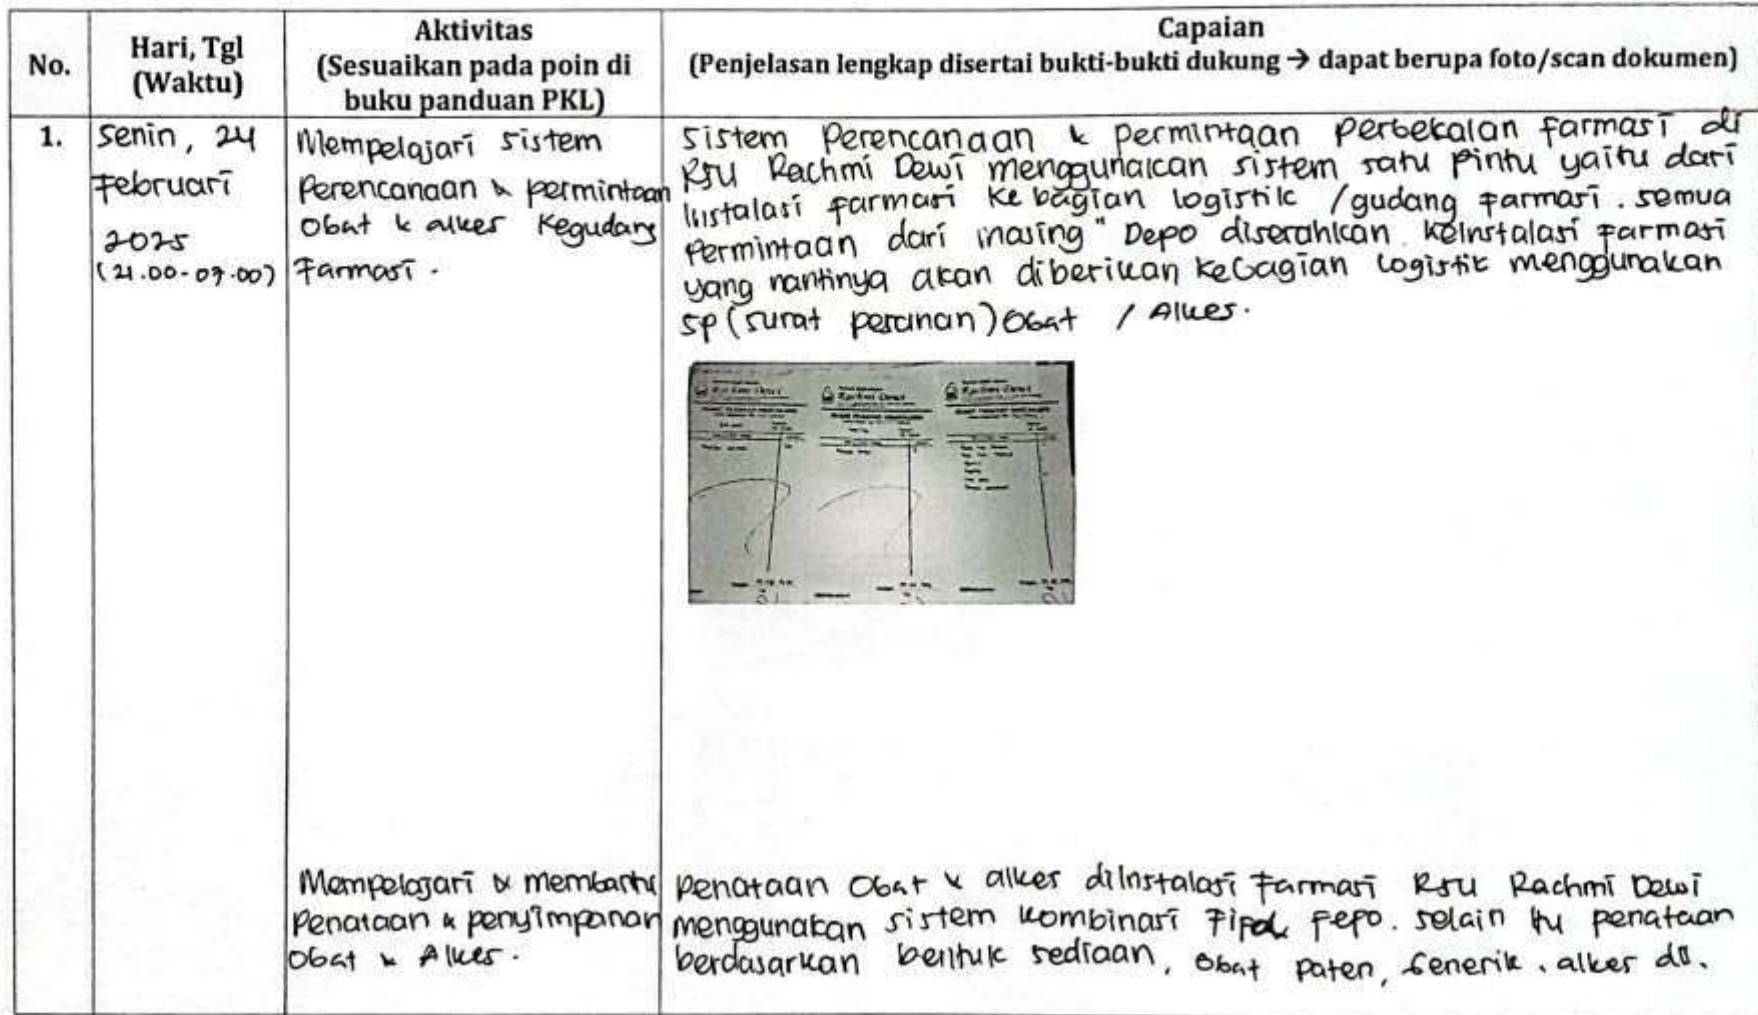 No.
Hari, Tgl
(Waktu)
Aktivitas
(Sesuaikan pada poin di
buku panduan PKL)
Capaian
(Penjelasan lengkap disertai bukti-bukti dukung → dapat berupa foto/scan dokumen)
1.
Senin, 24
Februari
2025
(21.00-07.00)
Mempelajari sistem
Perencanaan & permintaan
Obat & alkes Kegudang
Farmasi.
Sistem Perencanaan & permintaan perbekalan farmasi di
RSU Rachmi Dewi menggunakan sistem satu pintu yaitu dari
Instalasi farmasi ke bagian logistik / gudang farmasi. semua
Permintaan dari masing" Depo diserahkan keInstalasi farmasi
yang nantinya akan diberikan kebagian logistik menggunakan
SP (surat pesanan) Obat / Alkes.
Rachmi Dewi
Rachmi Dewi
Rachmi Dewi
Mempelajari & membantu
Penataan & penyimpanan
Obat & Alkes.
Penataan Obat & alkes diInstalasi Farmasi RSU Rachmi Dewi
menggunakan sistem kombinasi Fifo & Fefo. selain itu penataan
berdasarkan bentuk sediaan, Obat Paten, Generik, alkes dll.